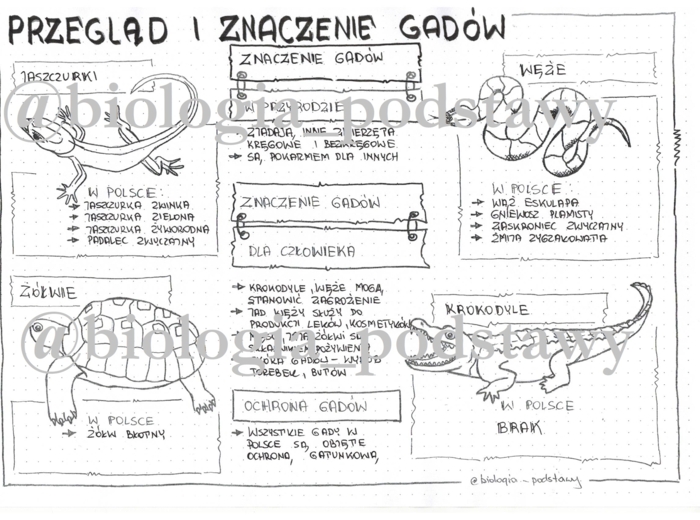 PRZEGLĄD I ZNACZENIE GADÓW
JASZCZURKI
W POLSCE:
→ JASZCZURKA ZWINKA
→ JASZCZURKA ZIELONA
→ JASZCZURKA ŻYWORODNA
→ PADALEC ZWYCZAJNY
ZNACZENIE GADÓW
W PRZYRODZIE
ZJADAJĄ INNE ZWIERZĘTA
KRĘGOWE I BEZKRĘGOWE
→ SĄ POKARMEM DLA INNYCH
WĘŻE
W POLSCE:
→ WĄŻ ESKULAPA
→ GNIEWOSZ PLAMISTY
→ ZASKRONIEC ZWYCZAJNY
→ ŻMIJA ZYGZAKOWATA
@biologia_podstawy
ZNACZENIE GADÓW
DLA CZŁOWIEKA
→ KROKODYLE, WĘŻE MOGĄ
STANOWIĆ ZAGROŻENIE
→ JAD WĘŻY SŁUŻY DO
PRODUKCJI LEKÓW, KOSMETYKÓW
MIĘSO, JAJA ŻÓŁWI SĄ
POŻYWIENIA
SKÓRA GADÓW - WYRÓB
TOREBEK, BUTÓW
ŻÓŁWIE
W POLSCE
→ ŻÓŁW BŁOTNY
KROKODYLE
W POLSCE
BRAK
@biologia_podstawy
OCHRONA GADÓW
→ WSZYSTKIE GADY W
POLSCE SĄ OBJĘTE
OCHRONĄ GATUNKOWĄ
@biologia_podstawy